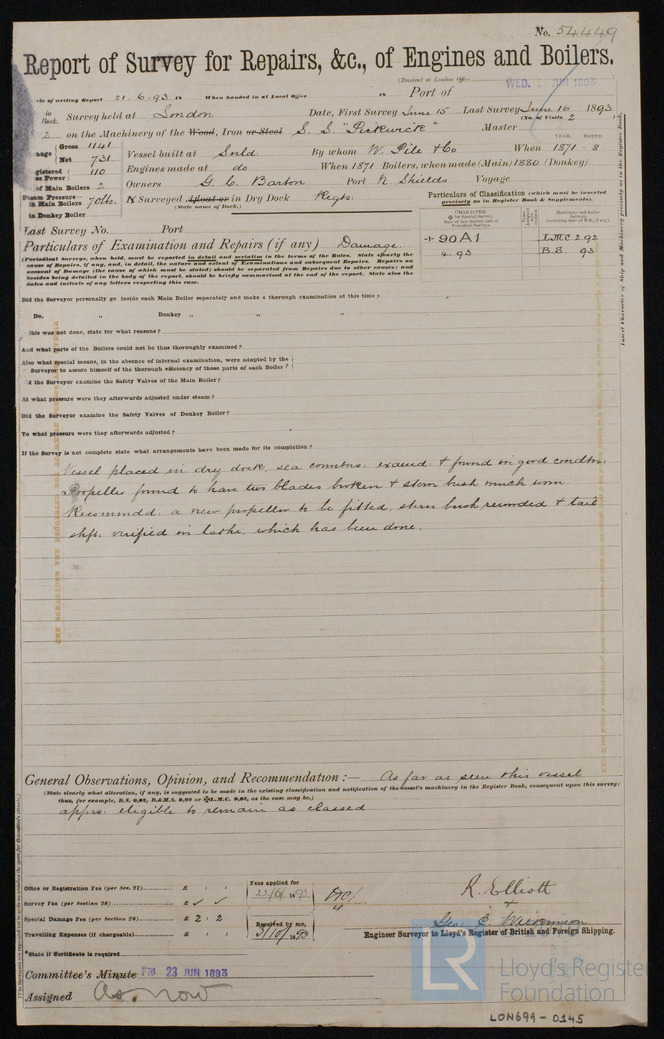 No. 54449
Report of Survey for Repairs, &c., of Engines and Boilers.
(Received at London Office
WED. JUN 1893
of writing Report 21.6.93 When handed in at Local Office Port of
in Book. Survey held at London Date, First Survey June 15 Last Survey June 16 1893
(No. of Visits 2
2 on the Machinery of the Wood, Iron or Steel S. S. "Pickwick" Master
Gross 1141
Net 731
Vessel built at Snld. By whom W. Pile & Co When 1871 - 8
YEAR. MONTH.
Registered Horse Power 110
Engines made at do When 1871 Boilers, when made (Main) 1880 (Donkey)
of Main Boilers 2
Owners G. C. Barton Port N. Shields Voyage
Steam Pressure in Main Boilers 70lbs.
If Surveyed Afloat or in Dry Dock Regts.
(State name of Dock.)
in Donkey Boiler
Particulars of Classification (which must be inserted precisely as in Register Book & Supplements).
Last Survey No. Port
+90A1 LMC 2.92
4.93 B.S. 93
Particulars of Examination and Repairs (if any) Damage.
(Periodical Surveys, when held, must be reported in detail and seriatim in the terms of the Rules. State clearly the
cause of Repairs, if any, and, in detail, the nature and extent of Examinations and subsequent Repairs. Repairs on
account of Damage (the cause of which must be stated) should be separated from Repairs due to other causes; and
besides being detailed in the body of the report, should be briefly summarised at the end of the report. State also the
dates and initials of any letters respecting this case.
Did the Surveyor personally go inside each Main Boiler separately and make a thorough examination at this time?
Do. " Donkey " " "
this was not done, state for what reasons?
And what parts of the Boilers could not be thus thoroughly examined?
Also what special means, in the absence of internal examination, were adopted by the
Surveyor to assure himself of the thorough efficiency of those parts of each Boiler?
the Surveyor examine the Safety Valves of the Main Boiler?
At what pressure were they afterwards adjusted under steam?
Did the Surveyor examine the Safety Valves of Donkey Boiler?
To what pressure were they afterwards adjusted?
If the Survey is not complete state what arrangements have been made for its completion?
Vessel placed in dry dock, sea conntns: examd: & found in good condtn:
Propeller found to have two blades broken & stern bush much worn
Recommdd: a new propeller to be fitted, stern bush rewooded & tail
shft: verified in lathe, which has been done.
General Observations, Opinion, and Recommendation:— As far as seen this vessel
(State clearly what alteration, if any, is suggested to be made in the existing classification and notification of the vessel's machinery in the Register Book, consequent upon this survey;
thus, for example, B.S. 9,92, B.&M.S. 9,92 or L.M.C. 9,92, as the case may be.)
apprs: eligible to remain as classed
Office or Registration Fee (per Sec. 27) £ : :
Survey Fee (per Section 28) £
Special Damage Fee (per Section 28) £ 2 : 2
Travelling Expenses (if chargeable) £ : :
Fees applied for
22/6/1893
Received by me,
3/10/1893
R. Elliott
+
Geo. E Wilkinson
Engineer Surveyor to Lloyd's Register of British and Foreign Shipping.
*State if Certificate is required
Committee's Minute FRI 23 JUN 1893
Assigned As now
LR
Lloyd's Register
Foundation
LON699-0145